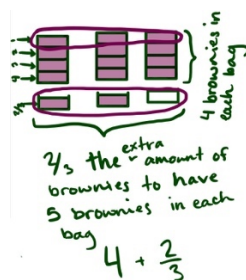 1
2
3
4
2/3
4 brownies in
each bag
2/3 the extra amount of
brownies to have
5 brownies in each
bag
4 + 2/3